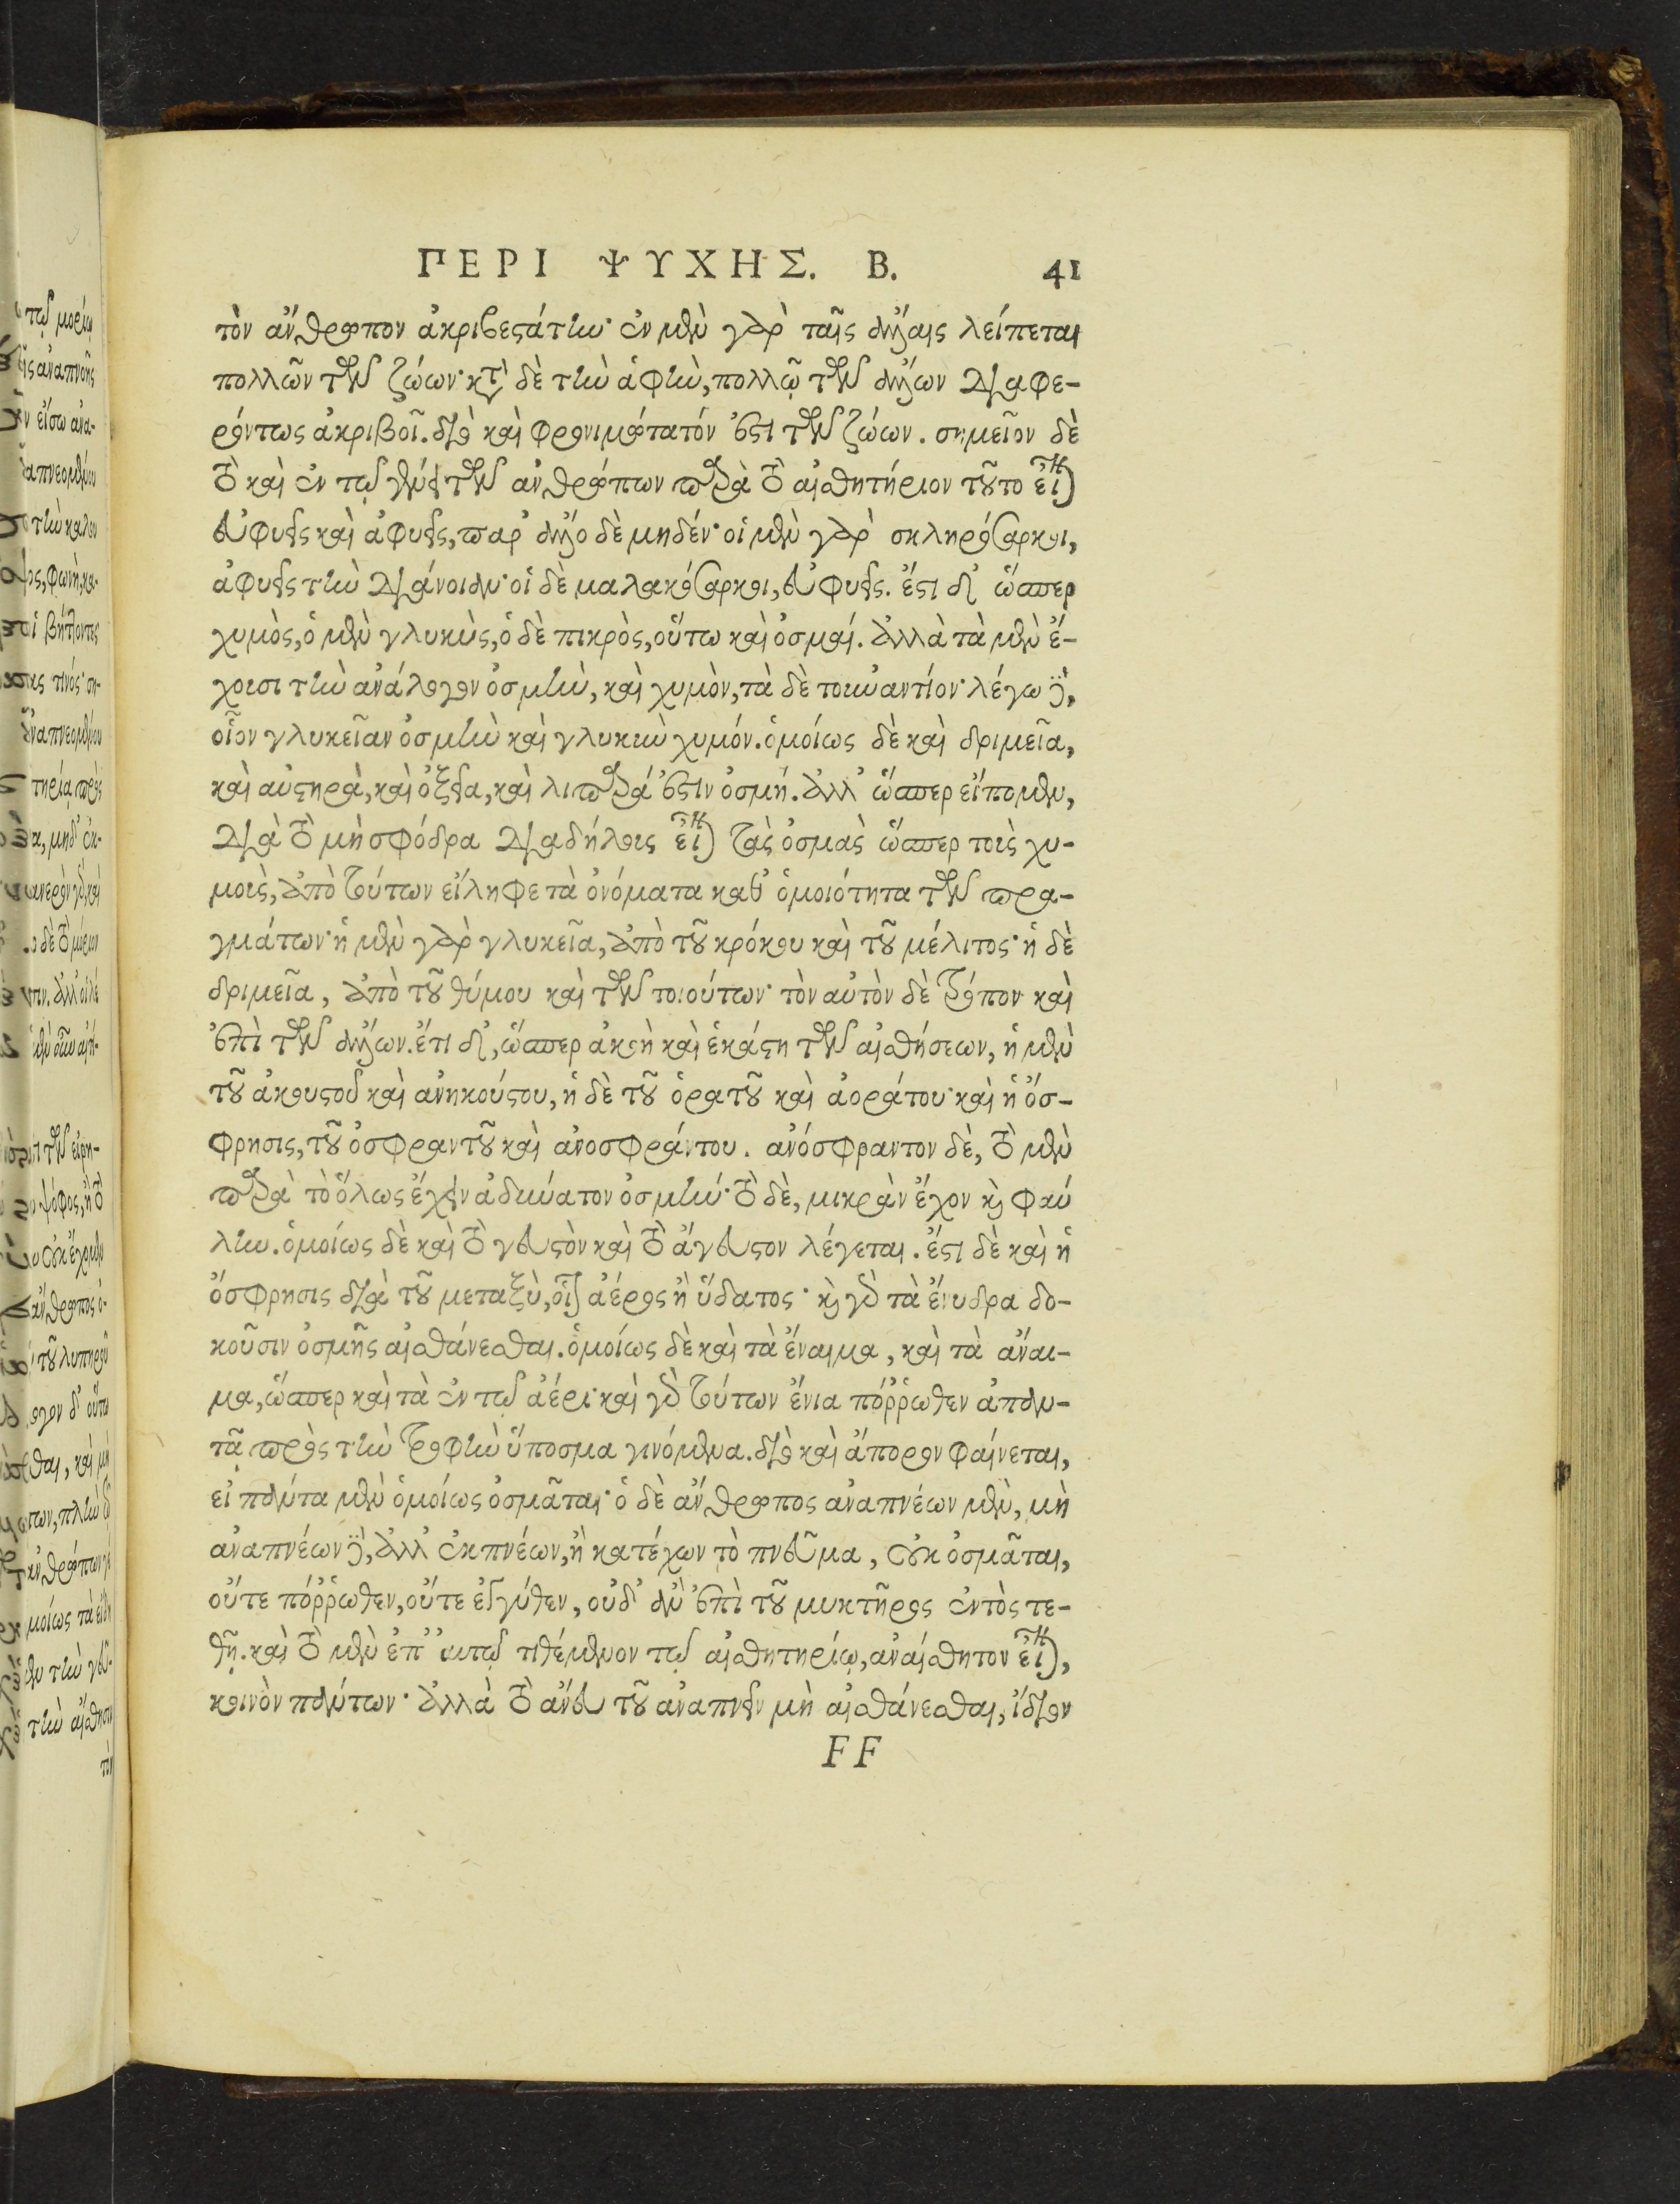 ΠΕΡΙ ΨΥΧΗΣ. Β. 41
τὸν ἄνθρωπον ἀκριβεστάτην· ἐν μὲν γὰρ ταῖς ἄλλαις λείπεται
πολλῶν τῶν ζώων· κατὰ δὲ τὴν ἁφὴν, πολλῷ τῶν ἄλλων διαφε-
ρόντως ἀκριβοῖ. διὸ καὶ φρονιμώτατόν ἐστι τῶν ζώων. σημεῖον δὲ
τὸ καὶ ἐν τῷ γένει τῶν ἀνθρώπων παρὰ τὸ αἰσθητήριον τοῦτο εἶναι
εὐφυεῖς καὶ ἀφυεῖς, παρ' ἄλλο δὲ μηδέν· οἱ μὲν γὰρ σκληρόσαρκοι,
ἀφυεῖς τὴν διάνοιαν· οἱ δὲ μαλακόσαρκοι, εὐφυεῖς. ἔστι δ' ὥσπερ
χυμὸς, ὁ μὲν γλυκὺς, ὁ δὲ πικρὸς, οὕτω καὶ ὀσμαί. ἀλλὰ τὰ μὲν ἔ-
χουσι τὴν ἀνάλογον ὀσμὴν, καὶ χυμὸν, τὰ δὲ τοὐναντίον· λέγω δὲ,
οἷον γλυκεῖαν ὀσμὴν καὶ γλυκὺν χυμόν. ὁμοίως δὲ καὶ δριμεῖα,
καὶ αὐστηρὰ, καὶ ὀξεῖα, καὶ λιπαρά ἐστιν ὀσμή. ἀλλ' ὥσπερ εἴπομεν,
διὰ τὸ μὴ σφόδρα διαδήλους εἶναι τὰς ὀσμὰς ὥσπερ τοὺς χυ-
μοὺς, ἀπὸ τούτων εἴληφε τὰ ὀνόματα καθ' ὁμοιότητα τῶν πρα-
γμάτων· ἡ μὲν γὰρ γλυκεῖα, ἀπὸ τοῦ κρόκου καὶ τοῦ μέλιτος· ἡ δὲ
δριμεῖα, ἀπὸ τοῦ θύμου καὶ τῶν τοιούτων· τὸν αὐτὸν δὲ τρόπον καὶ
ἐπὶ τῶν ἄλλων. ἔτι δ', ὥσπερ ἀκοὴ καὶ ἑκάστη τῶν αἰσθήσεων, ἡ μὲν
τοῦ ἀκουστοῦ καὶ ἀνηκούστου, ἡ δὲ τοῦ ὁρατοῦ καὶ ἀοράτου· καὶ ἡ ὄσ-
φρησις, τοῦ ὀσφραντοῦ καὶ ἀνοσφράντου. ἀνόσφραντον δὲ, τὸ μὲν
παρὰ τὸ ὅλως ἔχειν ἀδύνατον ὀσμήν· τὸ δὲ, μικρὰν ἔχον καὶ φαύ
λην. ὁμοίως δὲ καὶ τὸ γευστὸν καὶ τὸ ἄγευστον λέγεται. ἔστι δὲ καὶ ἡ
ὄσφρησις διὰ τοῦ μεταξὺ, οἷον ἀέρος ἢ ὕδατος· καὶ γὰρ τὰ ἔνυδρα δο-
κοῦσιν ὀσμῆς αἰσθάνεσθαι. ὁμοίως δὲ καὶ τὰ ἔναιμα, καὶ τὰ ἄναι-
μα, ὥσπερ καὶ τὰ ἐν τῷ ἀέρι· καὶ γὰρ τούτων ἔνια πόῤῥωθεν ἀπαν-
τᾷ πρὸς τὴν τροφὴν ὕποσμα γινόμενα. διὸ καὶ ἄπορον φαίνεται,
εἰ πάντα μὲν ὁμοίως ὀσμᾶται· ὁ δὲ ἄνθρωπος ἀναπνέων μὲν, μὴ
ἀναπνέων δὲ, ἀλλ' ἐκπνέων, ἢ κατέχων τὸ πνεῦμα, οὐκ ὀσμᾶται,
οὔτε πόῤῥωθεν, οὔτε ἐγγύθεν, οὐδ' ἂν ἐπὶ τοῦ μυκτῆρος ἐντὸς τε-
θῇ. καὶ τὸ μὲν ἐπ' αὐτῷ τιθέμενον τῷ αἰσθητηρίῳ, ἀναίσθητον εἶναι,
κοινὸν πάντων· ἀλλὰ τὸ ἄνευ τοῦ ἀναπνεῖν μὴ αἰσθάνεσθαι, ἴδιον
FF